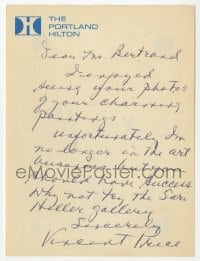 THE
PORTLAND
HILTON
Dear Mr. Bertrand
I enjoyed
seeing your photos
of your charming
paintings.
Unfortunately I'm
no longer in the art
business
have success
Why not try the Sari
Heller gallery
Sincerely
Vincent Price